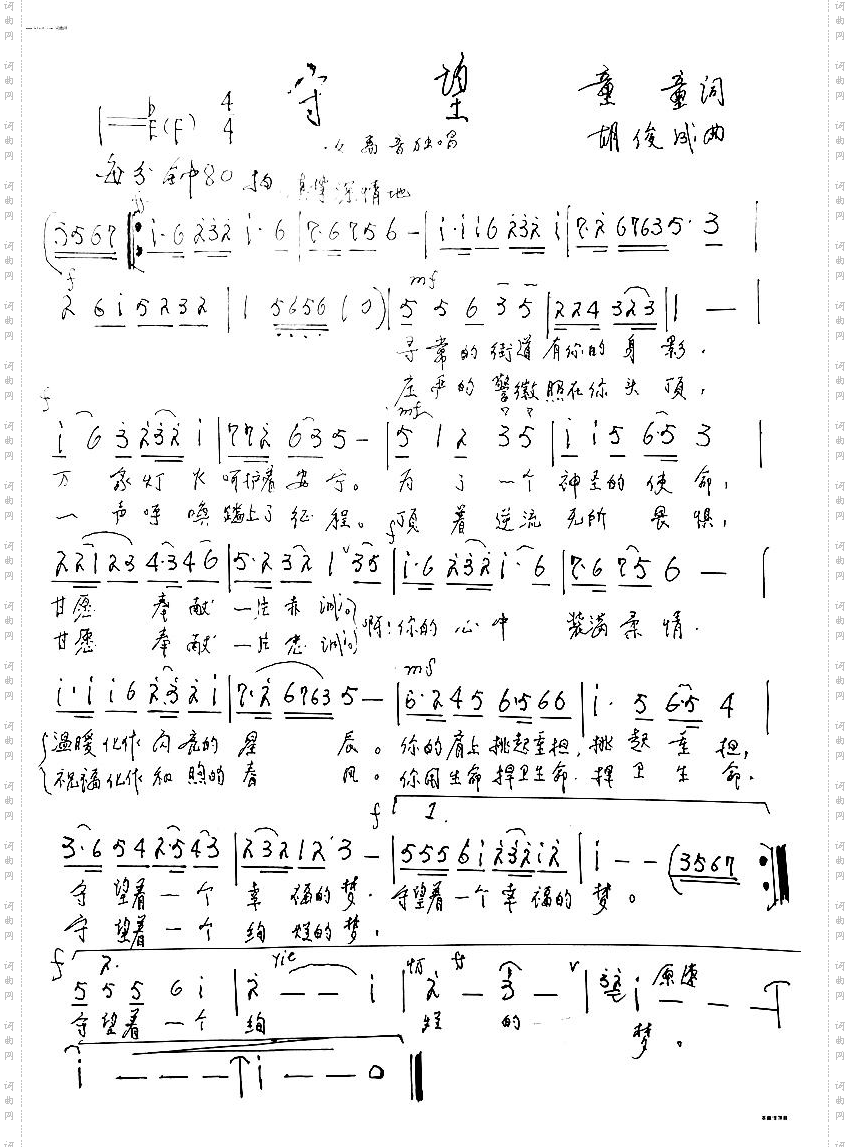 守望
童童词
1=♭E(F) 4/4
胡俊成曲
女高音独唱
每分钟80拍 真挚深情地
(3567 ‖: i·6 232 i·6 | 7·6756- | i·ii6 232 i | 7·2 67635·3 |
f mf
2 6i5232 | 1 5656 10) | 5 5 6 3 5 | 224 323 | 1 — |
寻常的街道有你的身影，
庄严的警徽照在你头顶，
f mf
i 6 3 232 i | 772 635- | 5 1 2 35 | ii5 6·5 3 |
万家灯火呵护着安宁。为了一个神圣的使命，
一声呼唤踏上了征程。顶着逆流无所畏惧，
f
22123 4·346 | 5·2 32 1 35 | i·6 232i·6 | 7·6 75 6 — |
甘愿奉献一片赤诚 啊！你的心中装满柔情，
甘愿奉献一片忠诚
mf
i·ii6 2·32i | 7·2 6763 5- | 6·245 6·566 | i· 5 6·5 4 |
温暖化作闪亮的星辰。你的肩上挑起重担，挑起重担，
祝福化作和煦的春风。你用生命捍卫生命，捍卫生命。
f 1.
3·6 54 2·543 | 23212·3- | 5556i232i2 | i--(3567 :‖
守望着一个幸福的梦，守望着一个幸福的梦。
守望着一个绚烂的梦，
f 2. 渐 ff 原速
5 5 5 6 i | 2 — — i | 2 — 3 — | 32 i — —
守望着一个绚烂的
梦。
i — — — i — — 0 ‖
词曲网